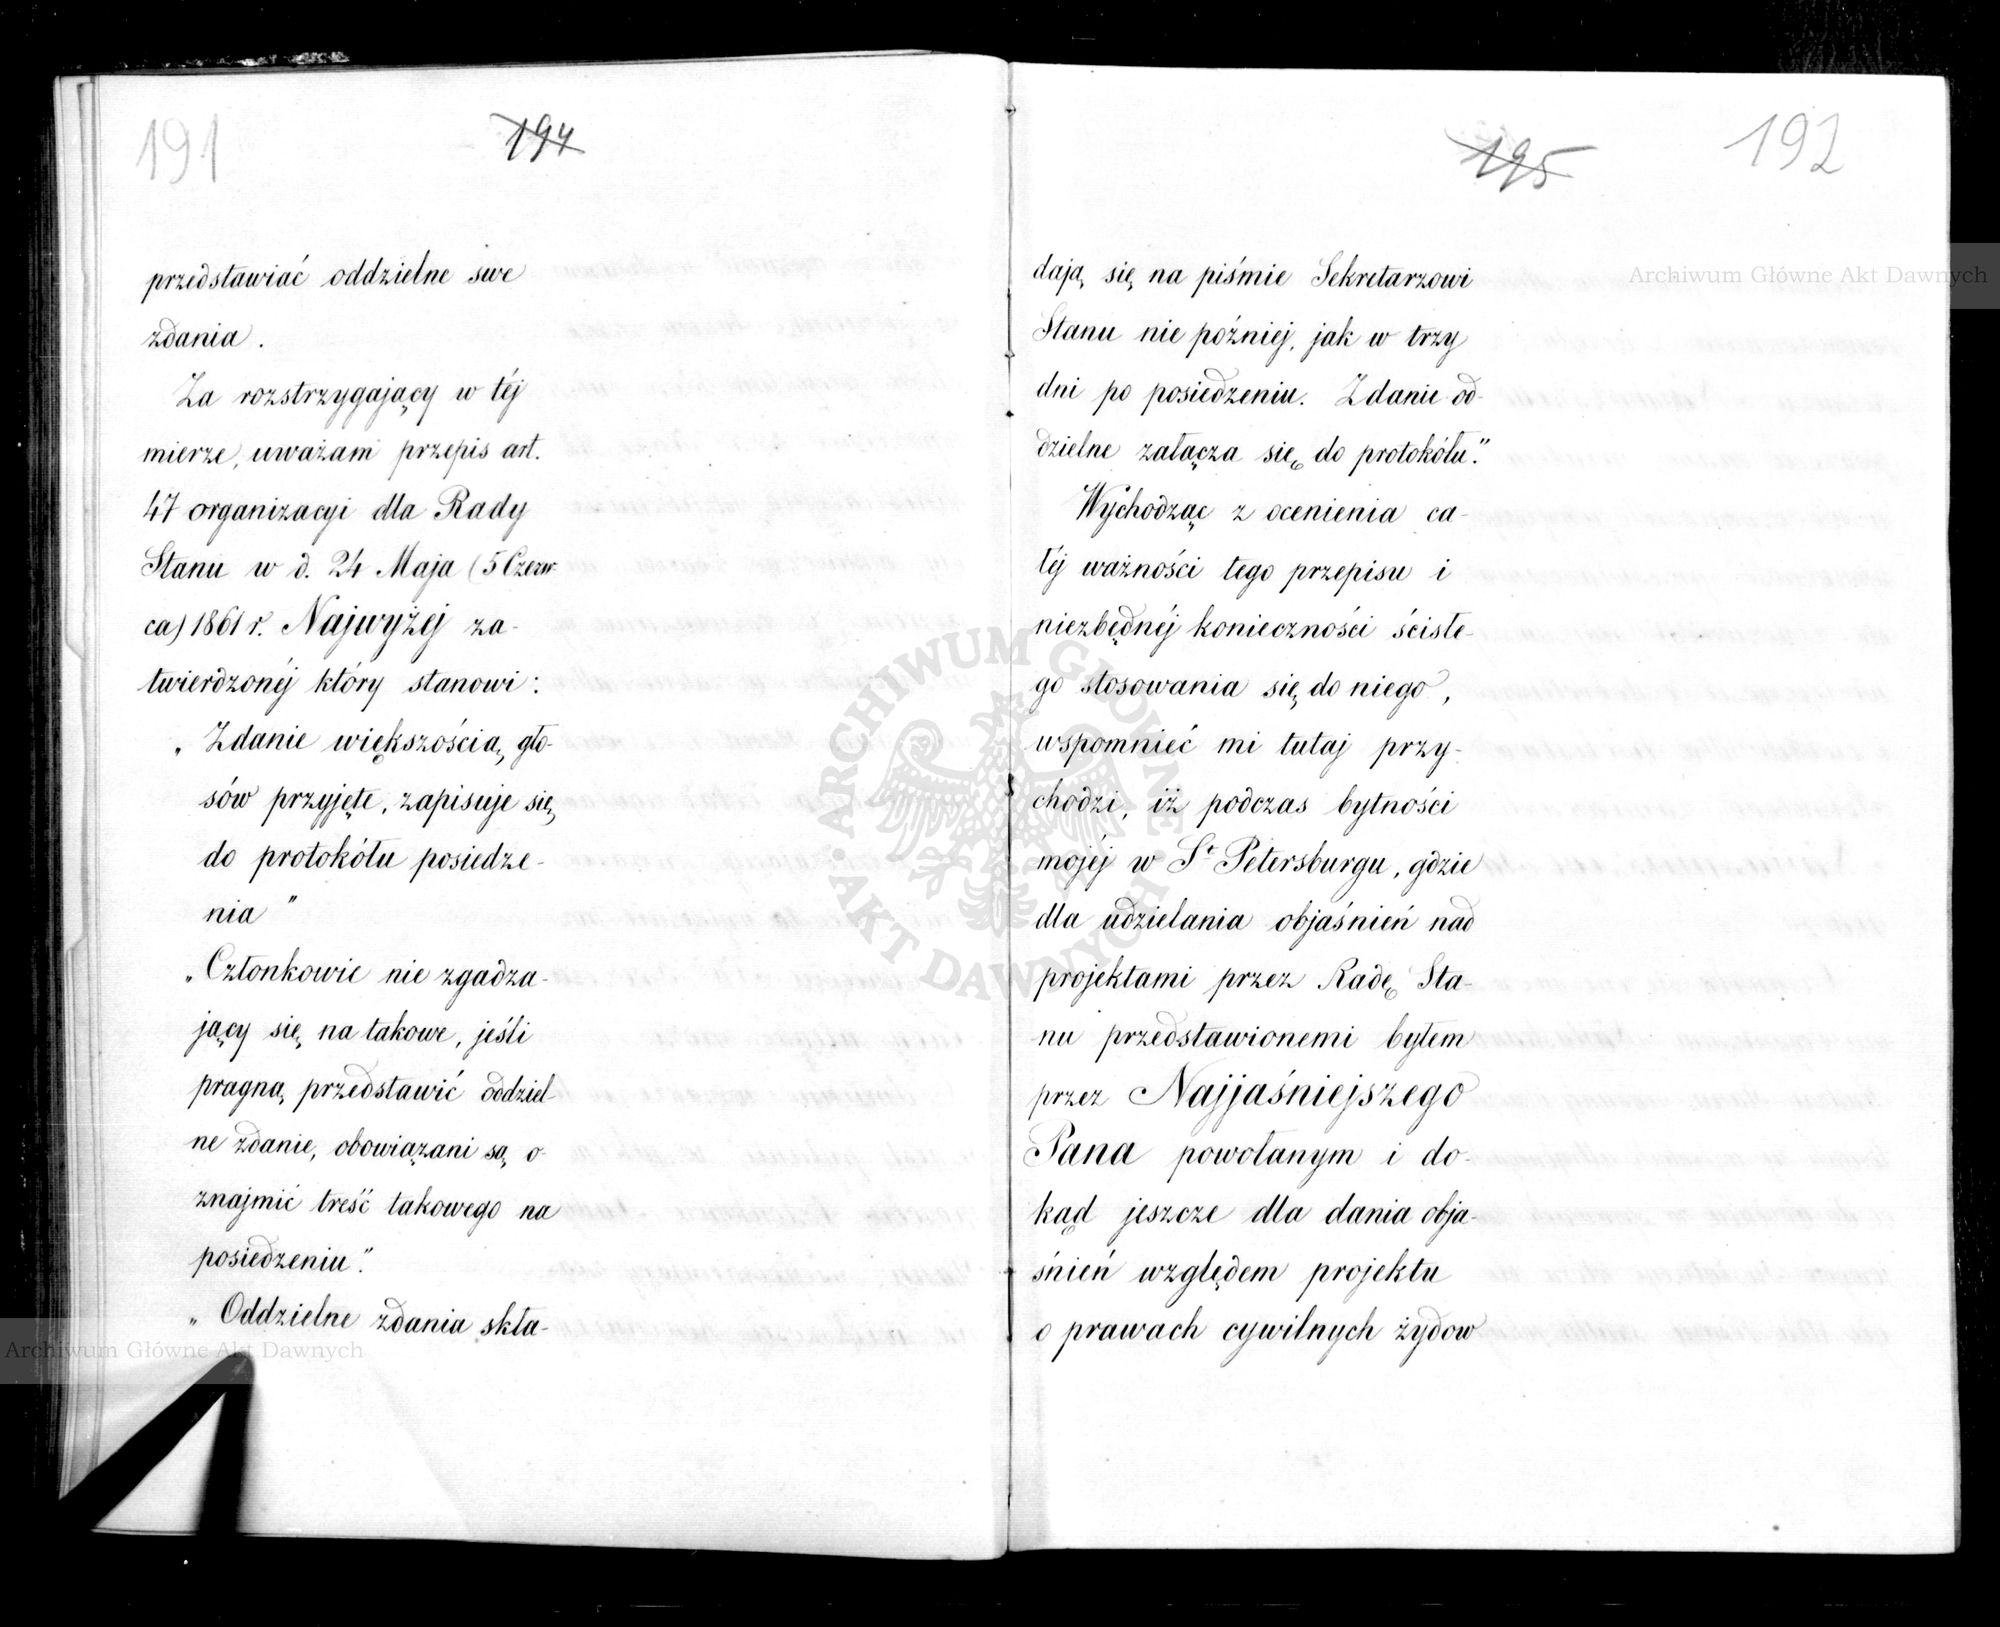 191
194
przedstawiać oddzielne swe
zdania.
Za rozstrzygający w téj
mierze, uważam przepis art.
47 organizacyi dla Rady
Stanu w d. 24 Maja (5 Czerw-
ca) 1861 r. Najwyżej za-
twierdzonéj który stanowi:
„Zdanie większością gło-
sów przyjęte, zapisuje się
do protokółu posiedze-
nia"
„Członkowie nie zgadza-
jący się na takowe, jeśli
pragną przedstawić oddziel-
ne zdanie, obowiązani są o-
znajmić treść takowego na
posiedzeniu".
„Oddzielne zdania skła-
195
192
dają się na piśmie Sekretarzowi
Stanu nie później, jak w trzy
dni po posiedzeniu. Zdanie od-
dzielne załącza się do protokółu."
Wychodząc z ocenienia ca-
łéj ważności tego przepisu i
niezbędnéj konieczności ściste-
go stosowania się do niego,
wspomnieć mi tutaj przy-
chodzi, iż podczas bytności
mojéj w St Petersburgu, gdzie
dla udzielania objaśnień nad
projektami przez Radę Sta-
nu przedstawionemi byłem
przez Najjaśniejszego
Pana powołanym i do-
kąd jeszcze dla dania obja-
śnień względem projektu
o prawach cywilnych żydow
Archiwum Główne Akt Dawnych
ARCHIWUM GŁÓWNE
AKT DAWNYCH
Archiwum Główne Akt Dawnych